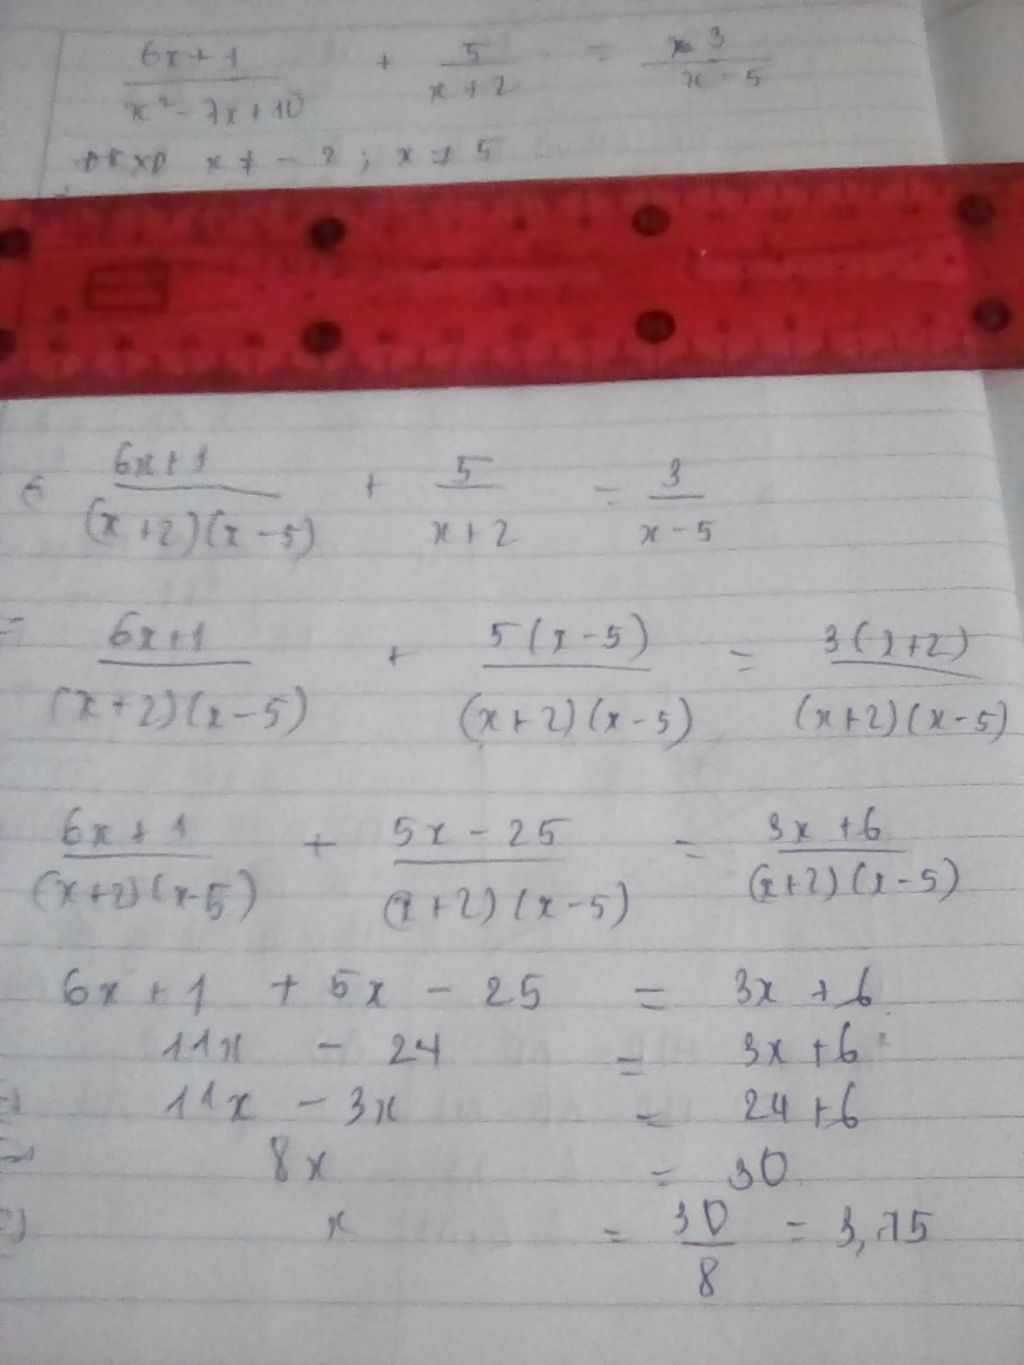 (6x+1)/(x² - 7x+10) + 5/(x+2) = 3/(x-5)
ĐKXĐ x ≠ -2 ; x ≠ 5
(6x+1)/((x+2)(x-5)) + 5/(x+2) = 3/(x-5)
= (6x+1)/((x+2)(x-5)) + 5(x-5)/((x+2)(x-5)) = 3(x+2)/((x+2)(x-5))
(6x+1)/((x+2)(x-5)) + (5x-25)/((x+2)(x-5)) = (3x+6)/((x+2)(x-5))
6x+1 + 5x - 25 = 3x + 6
11x - 24 = 3x+6
11x - 3x = 24+6
8x = 30
x = 30/8 = 3,75